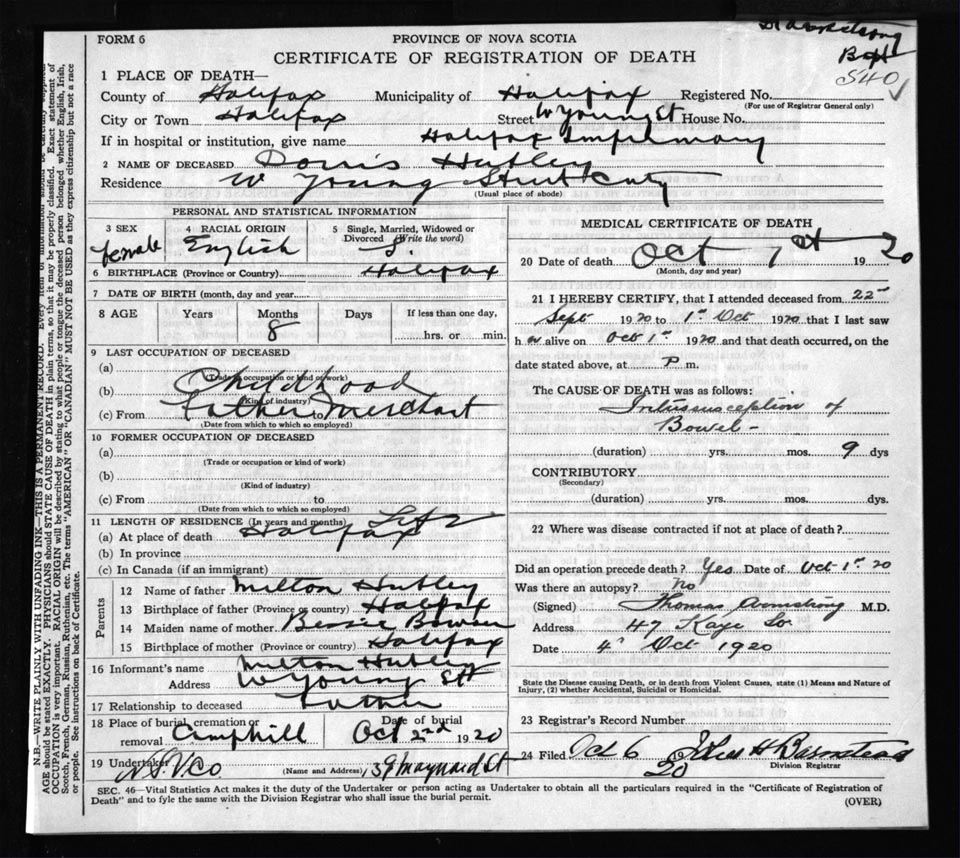 FORM 6
PROVINCE OF NOVA SCOTIA
Armstrong
CERTIFICATE OF REGISTRATION OF DEATH
540
1 PLACE OF DEATH—
County of Halifax Municipality of Halifax Registered No.
(For use of Registrar General only)
City or Town Halifax Street W Young St House No.
If in hospital or institution, give name Halifax Infirmary
2 NAME OF DECEASED Doris Hubley
Residence W Young Street City
(Usual place of abode)
PERSONAL AND STATISTICAL INFORMATION
3 SEX female
4 RACIAL ORIGIN English
5 Single, Married, Widowed or Divorced (Write the word) S
6 BIRTHPLACE (Province or Country) Halifax
7 DATE OF BIRTH (month, day and year)
8 AGE Years Months Days If less than one day,
8 hrs. or min.
9 LAST OCCUPATION OF DECEASED
(a)
(Trade or occupation or kind of work)
(b) Childhood
(Kind of industry)
(c) From Father Merchant to
(Date from which to which so employed)
10 FORMER OCCUPATION OF DECEASED
(a)
(Trade or occupation or kind of work)
(b)
(Kind of industry)
(c) From to
(Date from which to which so employed)
11 LENGTH OF RESIDENCE (In years and months) Life
(a) At place of death Halifax
(b) In province
(c) In Canada (if an immigrant)
Parents
12 Name of father Milton Hubley
13 Birthplace of father (Province or country) Halifax
14 Maiden name of mother Bessie Bowser
15 Birthplace of mother (Province or country) Halifax
16 Informant's name Milton Hubley
Address W Young Stt
17 Relationship to deceased Father
18 Place of burial, cremation or removal Camphill
Date of burial Oct 2nd 1920
19 Undertaker N.S.U.Co (Name and Address) 39 Maynard St
MEDICAL CERTIFICATE OF DEATH
20 Date of death Oct 1st 1920
(Month, day and year)
21 I HEREBY CERTIFY, that I attended deceased from 22nd
Sept 1920 to 1st Oct 1920 that I last saw
her alive on Oct 1st 1920 and that death occurred, on the
date stated above, at P m.
The CAUSE OF DEATH was as follows:
Intussusception of
Bowel-
(duration) yrs. mos. 9 dys
CONTRIBUTORY
(Secondary)
(duration) yrs. mos. dys.
22 Where was disease contracted if not at place of death?
Did an operation precede death? Yes Date of Oct 1st 20
Was there an autopsy? No
(Signed) Thomas Armstrong M.D.
Address 47 Kaye St
Date 4th Oct 1920
State the Disease causing Death, or in death from Violent Causes, state (1) Means and Nature of
Injury, (2) whether Accidental, Suicidal or Homicidal.
23 Registrar's Record Number
24 Filed Oct 6 20 H Barnstead
Division Registrar
SEC. 46—Vital Statistics Act makes it the duty of the Undertaker or person acting as Undertaker to obtain all the particulars required in the "Certificate of Registration of
Death" and to fyle the same with the Division Registrar who shall issue the burial permit.
(OVER)
N.B.—WRITE PLAINLY WITH UNFADING INK—THIS IS A PERMANENT RECORD. Every item of information should be carefully supplied.
AGE should be stated EXACTLY. PHYSICIANS should STATE CAUSE OF DEATH in plain terms, so that it may be properly classified. Exact statement of
OCCUPATION is very important. RACIAL ORIGIN will be described by stating to what people or tongue the deceased person belonged whether English, Irish,
Scotch, French, German, Russian, Ruthenian, etc. The terms "AMERICAN" OR "CANADIAN" MUST NOT BE USED as they express citizenship but not a race
or people. See instructions on back of Certificate.